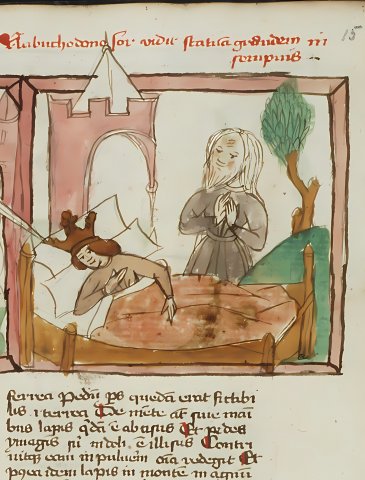 Nabuchodonosor vidit statuam grandem in
sompniis
15
ferrea Pedū ps quedā erat fictibi
lis ⁊ terrea De mōte at sine mani
bus lapis qdā ē abcisus Et pedes
ymagis sū in doli ē illisus Contri
uitq eam in puluem oīa redegit Et
pqea idem lapis in montē m agnū